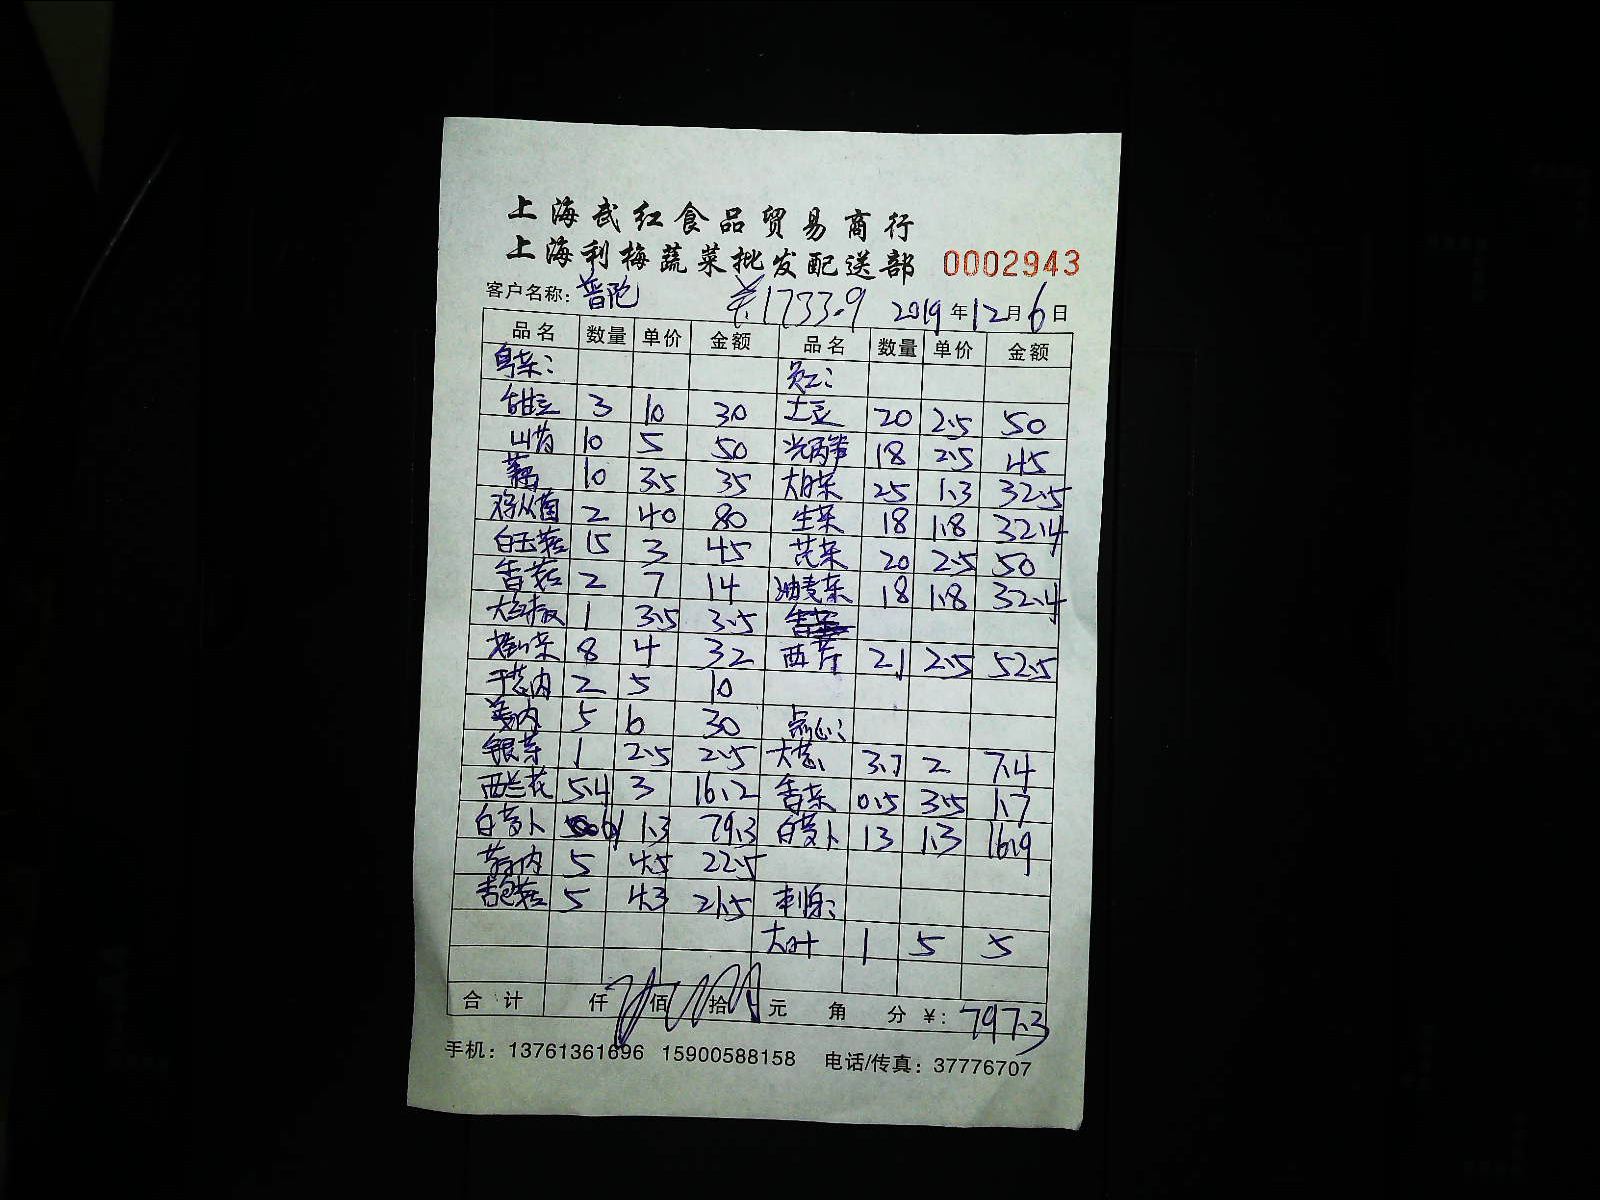 上海武红食品贸易商行
上海利梅蔬菜批发配送部 0002943
客户名称：普陀 ¥1733.9 2019年12月6日
品名 数量 单价 金额 品名 数量 单价 金额
粤菜： 员工：
甜豆 3 10 30 土豆 20 2.5 50
山药 10 5 50 光莴笋 18 2.5 45
藕 10 3.5 35 大白菜 25 1.3 32.5
鸡从菌 2 40 80 生菜 18 1.8 32.4
白玉菇 15 3 45 芫菜 20 2.5 50
香菇 2 7 14 油麦菜 18 1.8 32.4
大红椒 1 3.5 3.5
8 4 32 西芹 21 2.5 52.5
干葱肉 2 5 10
姜肉 5 6 30 点心：
银芽 1 2.5 2.5 大葱 3.7 2 7.4
西兰花 5.4 3 16.2 香菜 0.5 3.5 1.7
白萝卜 61 1.3 79.3 白萝卜 13 1.3 16.9
蒜肉 5 4.5 22.5
杏鲍菇 5 4.3 21.5 刺身：
大叶 1 5 5
合计 仟 佰 拾 元 角 分 ¥：797.3
手机：13761361696 15900588158 电话/传真：37776707